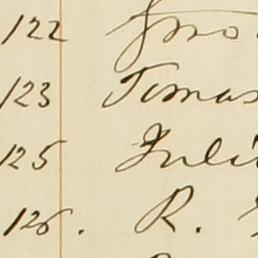 122 Jno
123 Tomas
125 Juli
126. R.